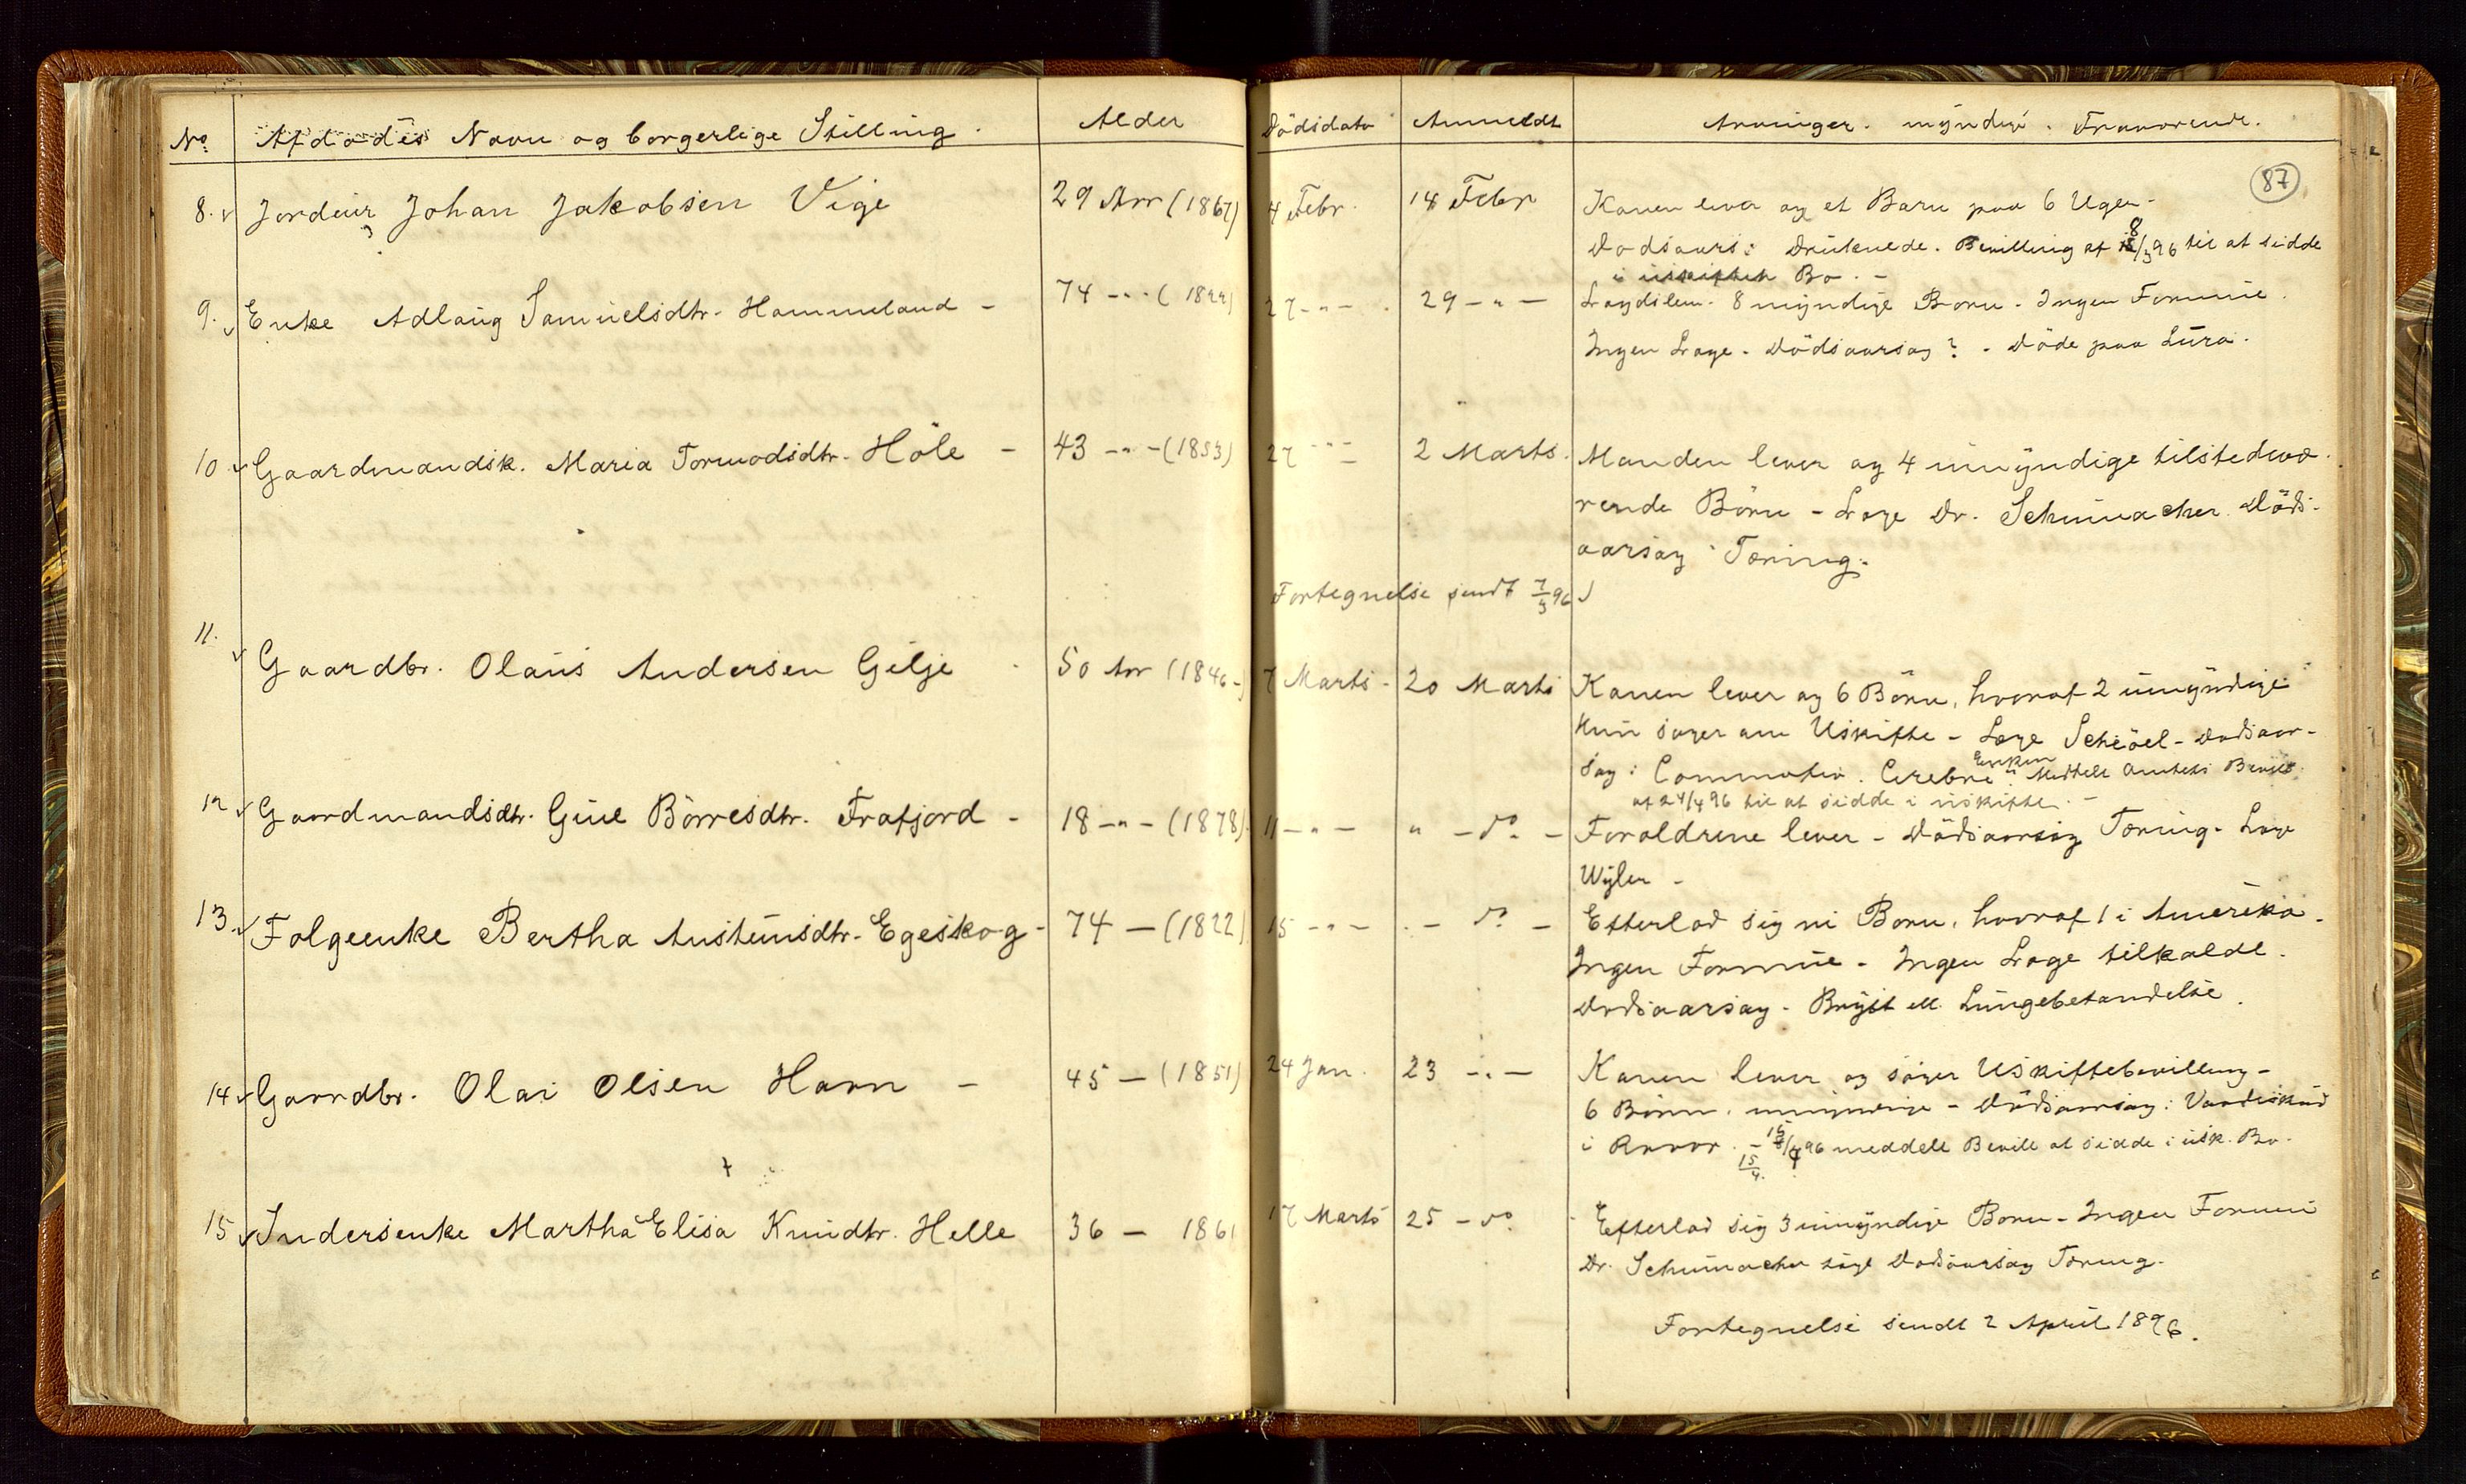 No. Afdödes Navn og borgerlige Stilling. Alder Dödsdato Anmeldt Arvinger. myndige. Fraværende.
87
8. Jordeier Johan Jakobsen Vige 29 Aar (1867) 4 Febr. 14 Febr Konen lever og et Barn paa 6 Uger.
Dödsaars: Druknede. Bevilling af 18/3 96 til at sidde
i uskiftet Bo. -
9. Enke Adlaug Samuelsdtr. Hammeland - 74 -"- (1822) 27 -"- 29 -"- Lægdslem. 8 myndige Börn. Ingen Formue.
Ingen Læge. Dödsaarsag? - Döde paa Lura.
10 Gaardmandsk. Maria Tormodsdtr. Höle - 43 -"- (1853) 27 -"- 2 Marts. Manden lever og 4 umyndige tilstedevæ-
rende Börn - Læge Dr. Schumacher. Döds-
aarsag Tæring.
Fortegnelse sendt 7/3 96
11. Gaardbr. Olaus Andersen Gilje 50 Aar (1846-) 7 Marts - 20 Marts Konen lever og 6 Börn, hvoraf 2 umyndige
Hun söger om Uskifte - Læge Schiöel - Dödsaar-
sag: Commotio. Cerebri" Enken Meddelt Amtets Bevill.
af 24/4 96 til at sidde i uskiftet. -
12 Gaardmandsdtr. Gine Börresdtr. Frafjord - 18 -"- (1878) 11 -"- " - do. - Foroldrene lever - Dödsaarsag Tæring. Læge
Wyler -
13. Folgeenke Bertha Austeinsdtr. Egeskog - 74 - (1822) 15 -"- - do - Efterlod sig ni Börn, hvoraf 1 i Amerika.
Ingen Formue - Ingen Læge tilkaldt.
Dödsaarsag - Bryst ell. Lungebetændelse.
14 Gaardbr. Olai Olsen Havn - 45 - (1851) 24 Jan. 23 -"- Konen lever og söger Uskiftebevilling -
6 Börn. umyndige - Dödsaarsag: Vaadeskud
i Rover. - 15/4 96 meddelt Bevill at sidde i usk. Bo.
15/4.
15 Indersenke Martha Elisa Knudtr. Helle 36 - 1861 17 Marts 25 - do. Efterlod sig 3 umyndige Börn - Ingen Formue
Dr. Schumacher sögt Dödsaarsag Tæring.
Fortegnelse sendt 2 April 1896.